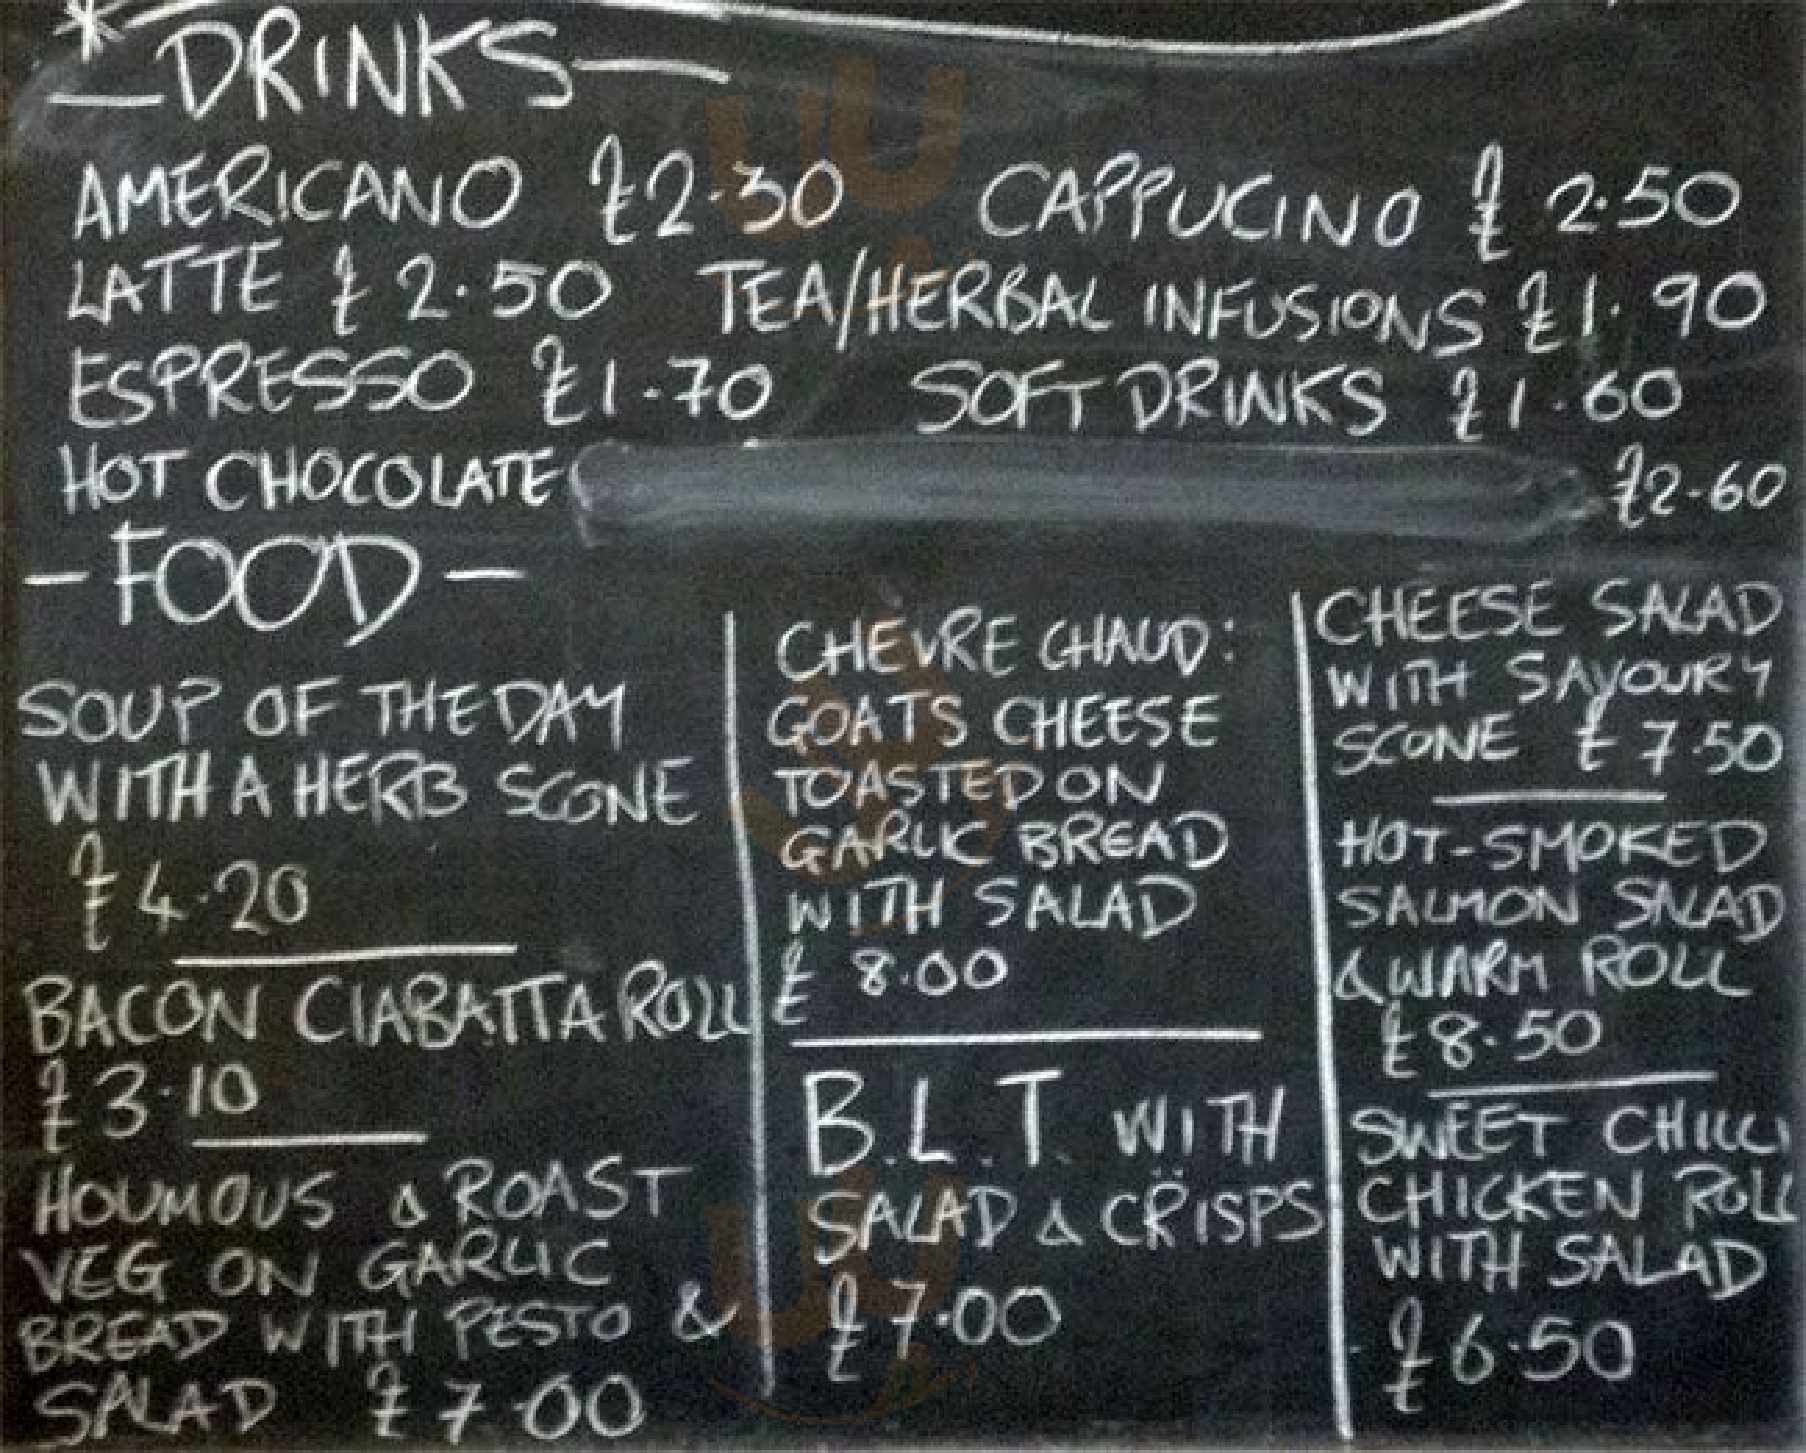 * DRINKS —
AMERICANO £2.30 CAPPUCINO £2.50
LATTE £2.50 TEA/HERBAL INFUSIONS £1.90
ESPRESSO £1.70 SOFT DRINKS £1.60
HOT CHOCOLATE £2.60
- FOOD -
SOUP OF THE DAY
WITH A HERB SCONE
£4.20
BACON CIABATTA ROLL
£3.10
HOUMOUS & ROAST
VEG ON GARLIC
BREAD WITH PESTO &
SALAD £7.00
CHEVRE CHAUD:
GOATS CHEESE
TOASTED ON
GARLIC BREAD
WITH SALAD
£8.00
B.L.T. WITH
SALAD & CRISPS
£7.00
CHEESE SALAD
WITH SAVOURY
SCONE £7.50
HOT-SMOKED
SALMON SALAD
& WARM ROLL
£8.50
SWEET CHILLI
CHICKEN ROLL
WITH SALAD
£6.50